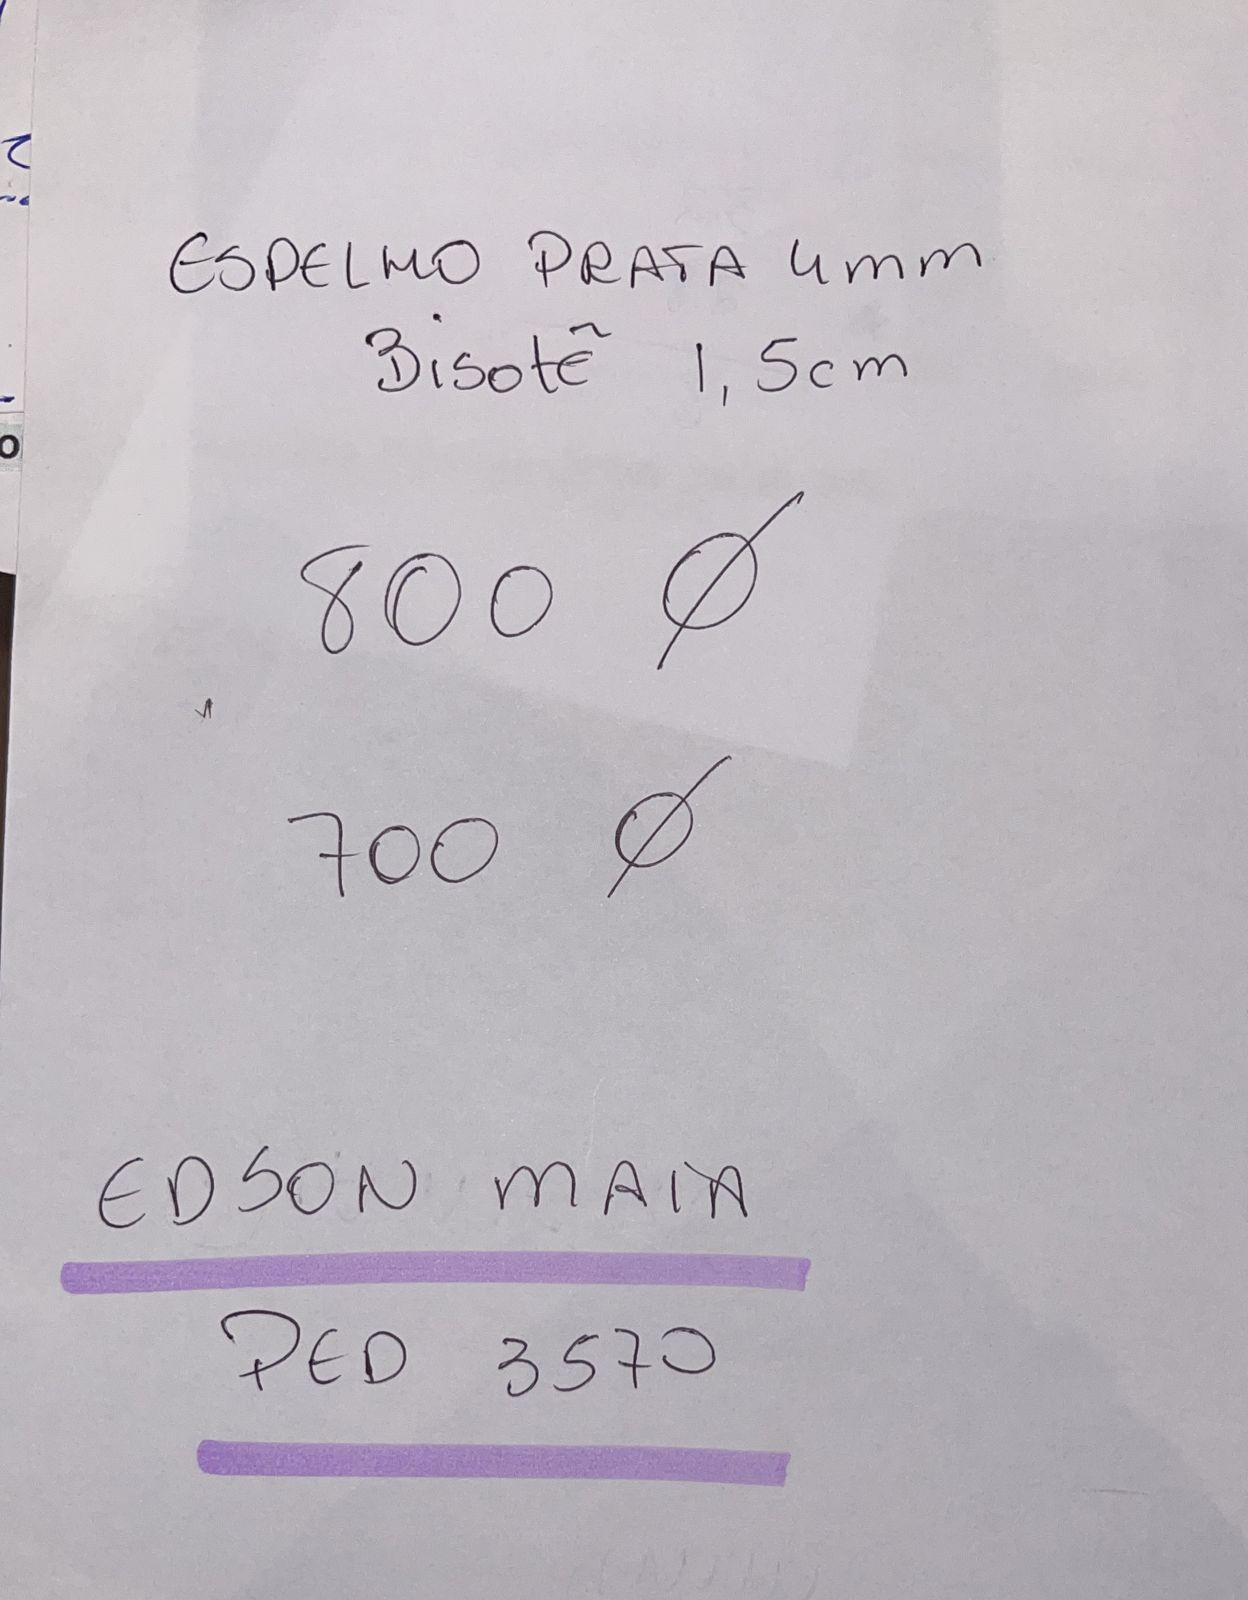 ESPELHO PRATA 4mm
Bisotê 1,5cm
800 Ø
700 Ø
EDSON MAIA
PED 3570